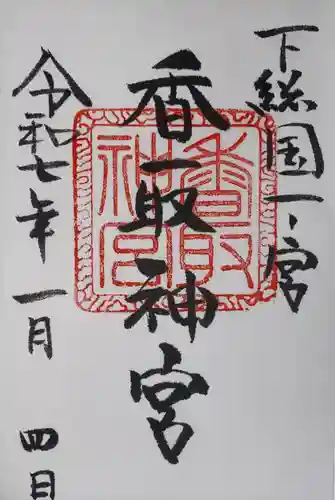 下総国一ノ宮
香取神宮
香取神宮
令和七年一月四日